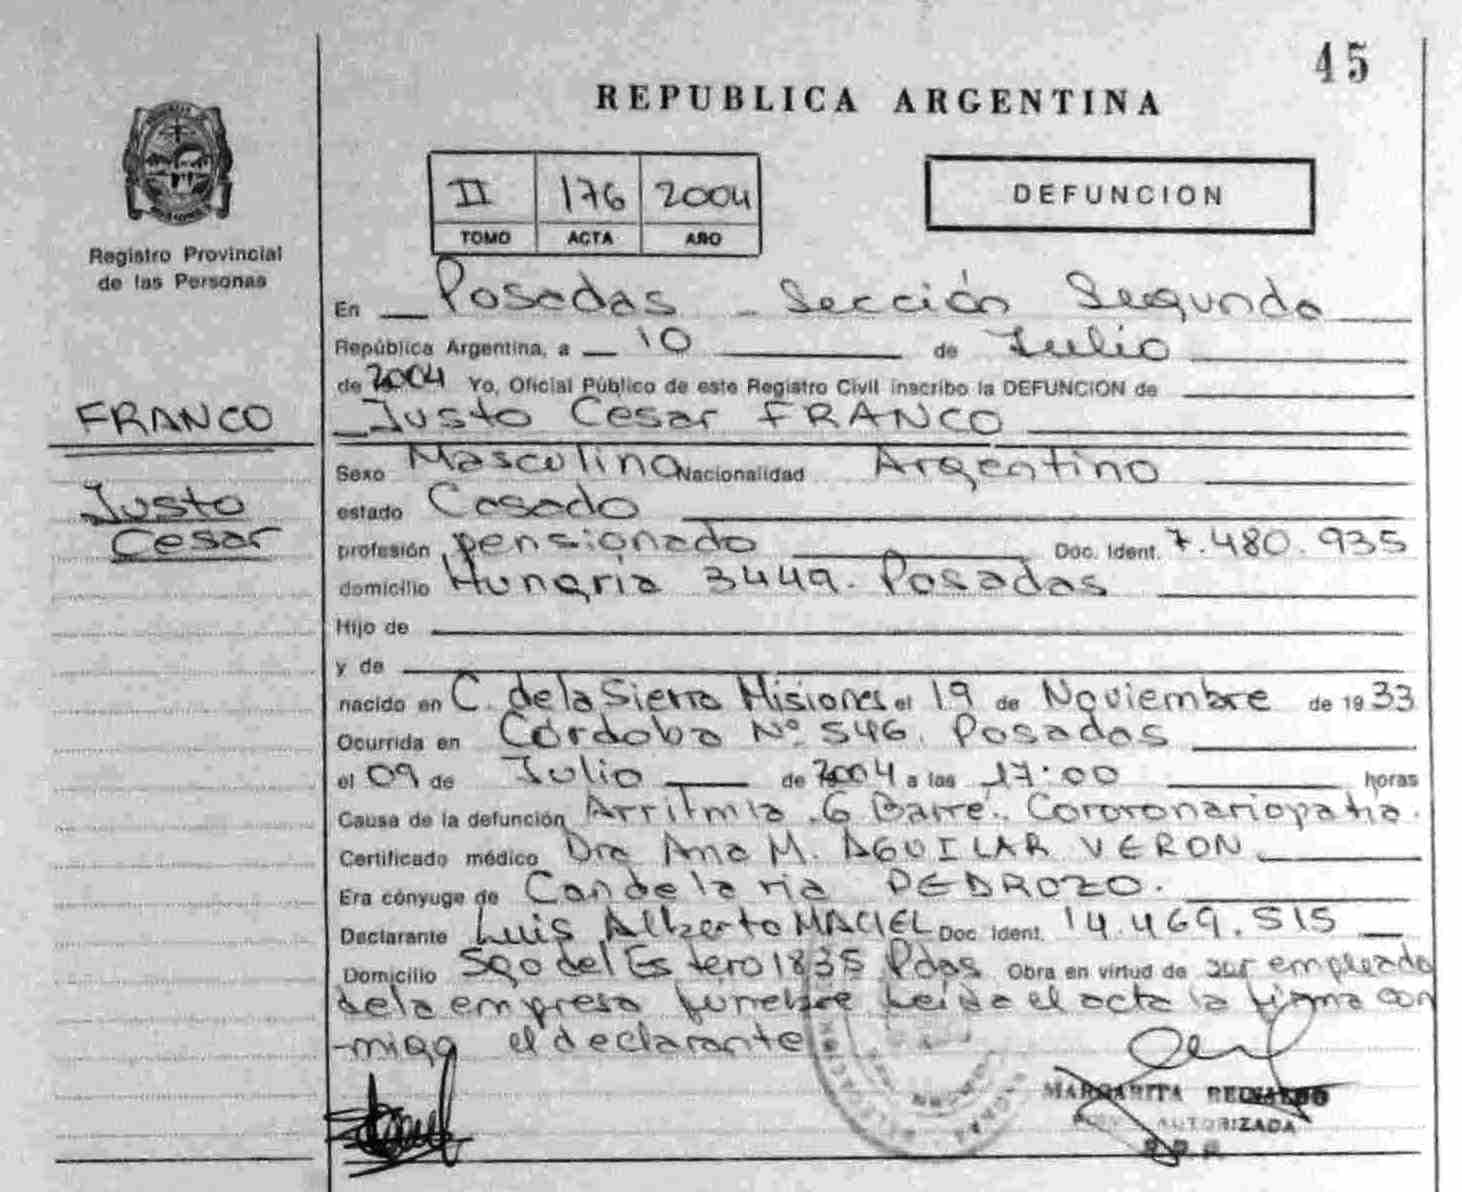 45
REPUBLICA ARGENTINA
II 176 2004
TOMO ACTA AÑO
DEFUNCION
Registro Provincial
de las Personas
En Posadas - Sección Segunda
República Argentina, a 10 de Julio
de 2004 Yo, Oficial Público de este Registro Civil inscribo la DEFUNCION de
FRANCO
Justo Cesar FRANCO
Sexo Masculino Nacionalidad Argentino
Justo
estado Casado
Cesar
profesión pensionado Doc. Ident. 7.480.935
domicilio Hungria 3449. Posadas
Hijo de
y de
nacido en C. de la Sierra Misiones el 19 de Noviembre de 1933
Ocurrida en Córdoba Nº 546. Posadas
el 09 de Julio de 2004 a las 17:00 horas
Causa de la defunción Arritmia. G Barré. Cororonariopatia.
Certificado médico Dra Ana M. AGUILAR VERON
Era cónyuge de Candelaria PEDROZO.
Declarante Luis Alberto MACIEL Doc Ident. 14.469.515
Domicilio Sgo del Estero 1835 Pdas Obra en virtud de ser empleado
de la empresa funebre Leida el acta la firma con
-migo el declarante
MARGARITA
AUTORIZADA